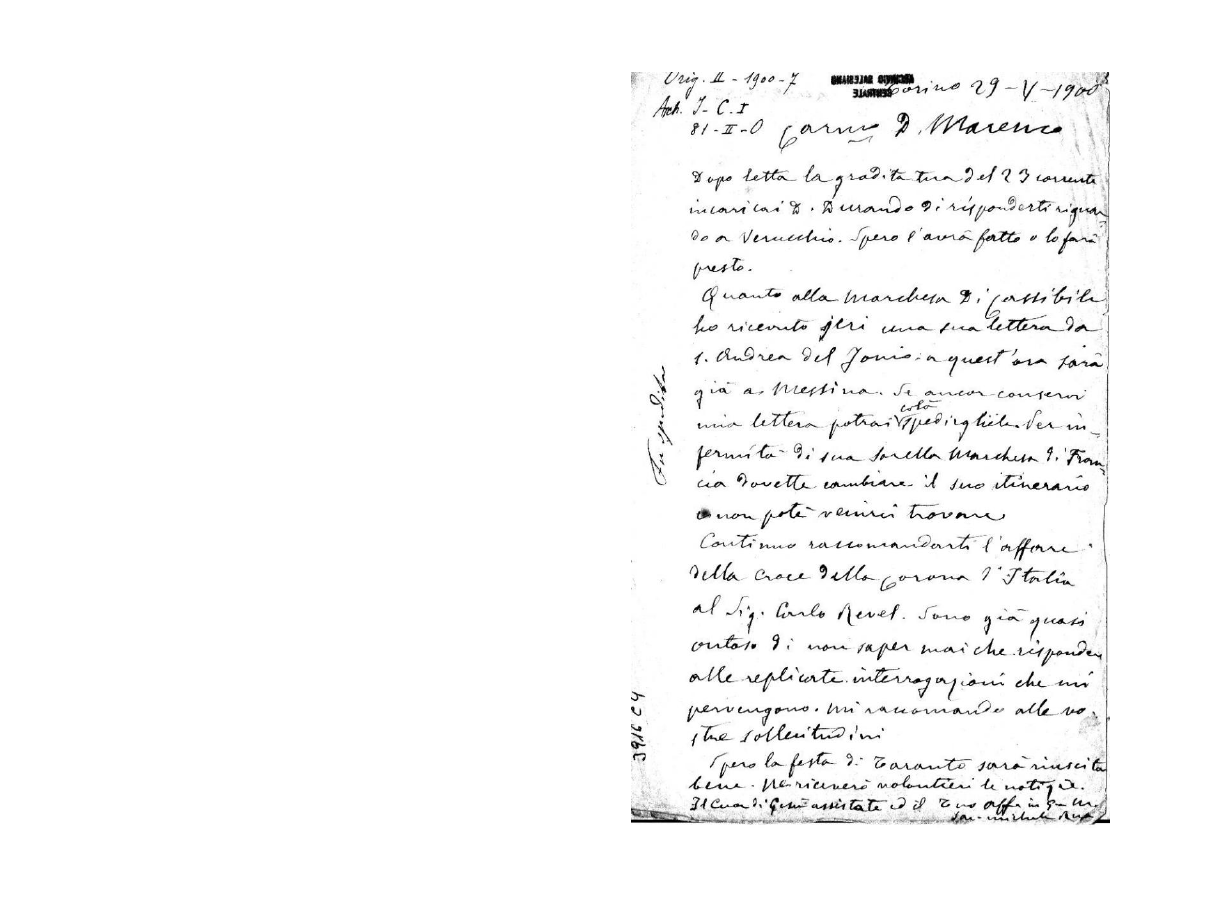 Orig. II - 1900 - 7
ARCHIVIO SALESIANO
CENTRALE
Torino 29-V-1900
Arch. I-C.I
81-II-O
Carmo D. Marenco
Dopo letta la gradita tua del 23 corrente
incaricai D. Durando di risponderti riguar
do a Verucchio. Spero l'avrà fatto o lo farà
presto.
Quanto alla Marchesa Di Cassibile
ho ricevuto jeri una sua lettera da
S. Andrea del Jonio: a quest'ora sarà
già a Messina. Se ancor conservi
mia lettera potrai colà spedirgliela. Per in-
fermità di sua sorella Marchesa di Fran
cia dovette cambiare il suo itinerario
e non potè venirci trovare
Continuo raccomandarti l'affare
della Croce della Corona d'Italia
al Sig. Carlo Revel. Sono già quasi
ontoso di non saper mai che risponder
alle replicate interrogazioni che mi
pervengono. Mi raccomando alle vo-
stre sollecitudini
Spero la festa di Taranto sarà riuscita
bene. Ne riceverò volontieri le notizie.
Il Cuor di Gesù assistate ed il Tuo aff in G. M.
Sac. Michele Rua
Fu spedita
3916 C4